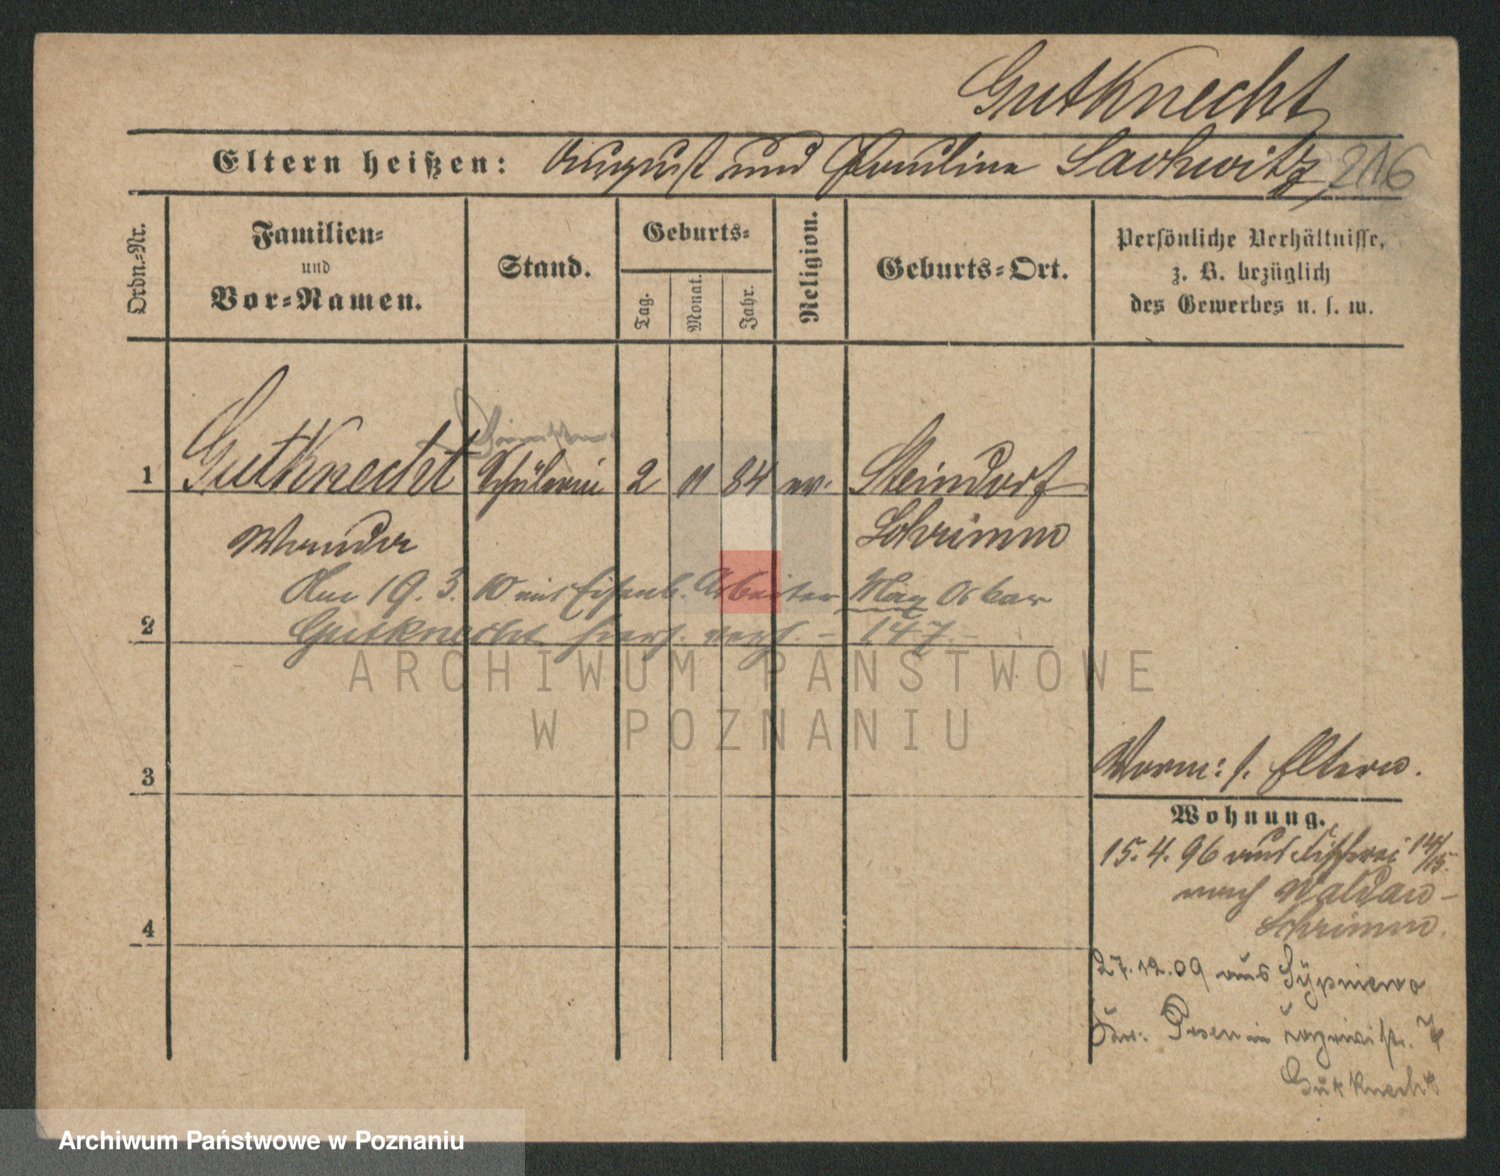 Gutknecht
Eltern heißen: August und Pauline Sachwitz 216
Ordn.-Nr.
Familien-
und
Vor-Namen.
Stand.
Geburts-
Tag.
Monat.
Jahr.
Religion.
Geburts-Ort.
Persönliche Verhältnisse,
z. B. bezüglich
des Gewerbes u. s. w.
1 Gutknecht Schülerin 2 11 84 ev. Steindorf
Wanda Schrimm
Am 19. 3. 10 mit Eisenb. Arbeiter Max Oskar
2 Gutknecht hier verh. - 147.-
ARCHIWUM PAŃSTWOWE
W POZNANIU
3
Vorm: s. Eltern.
Wohnung.
15.4.96 aus Fischerei 14/15
nach Waldau-
Schrimm.
4
27.12.09 aus Sypniewo
Kr. Posen in
Gutknecht
Archiwum Państwowe w Poznaniu